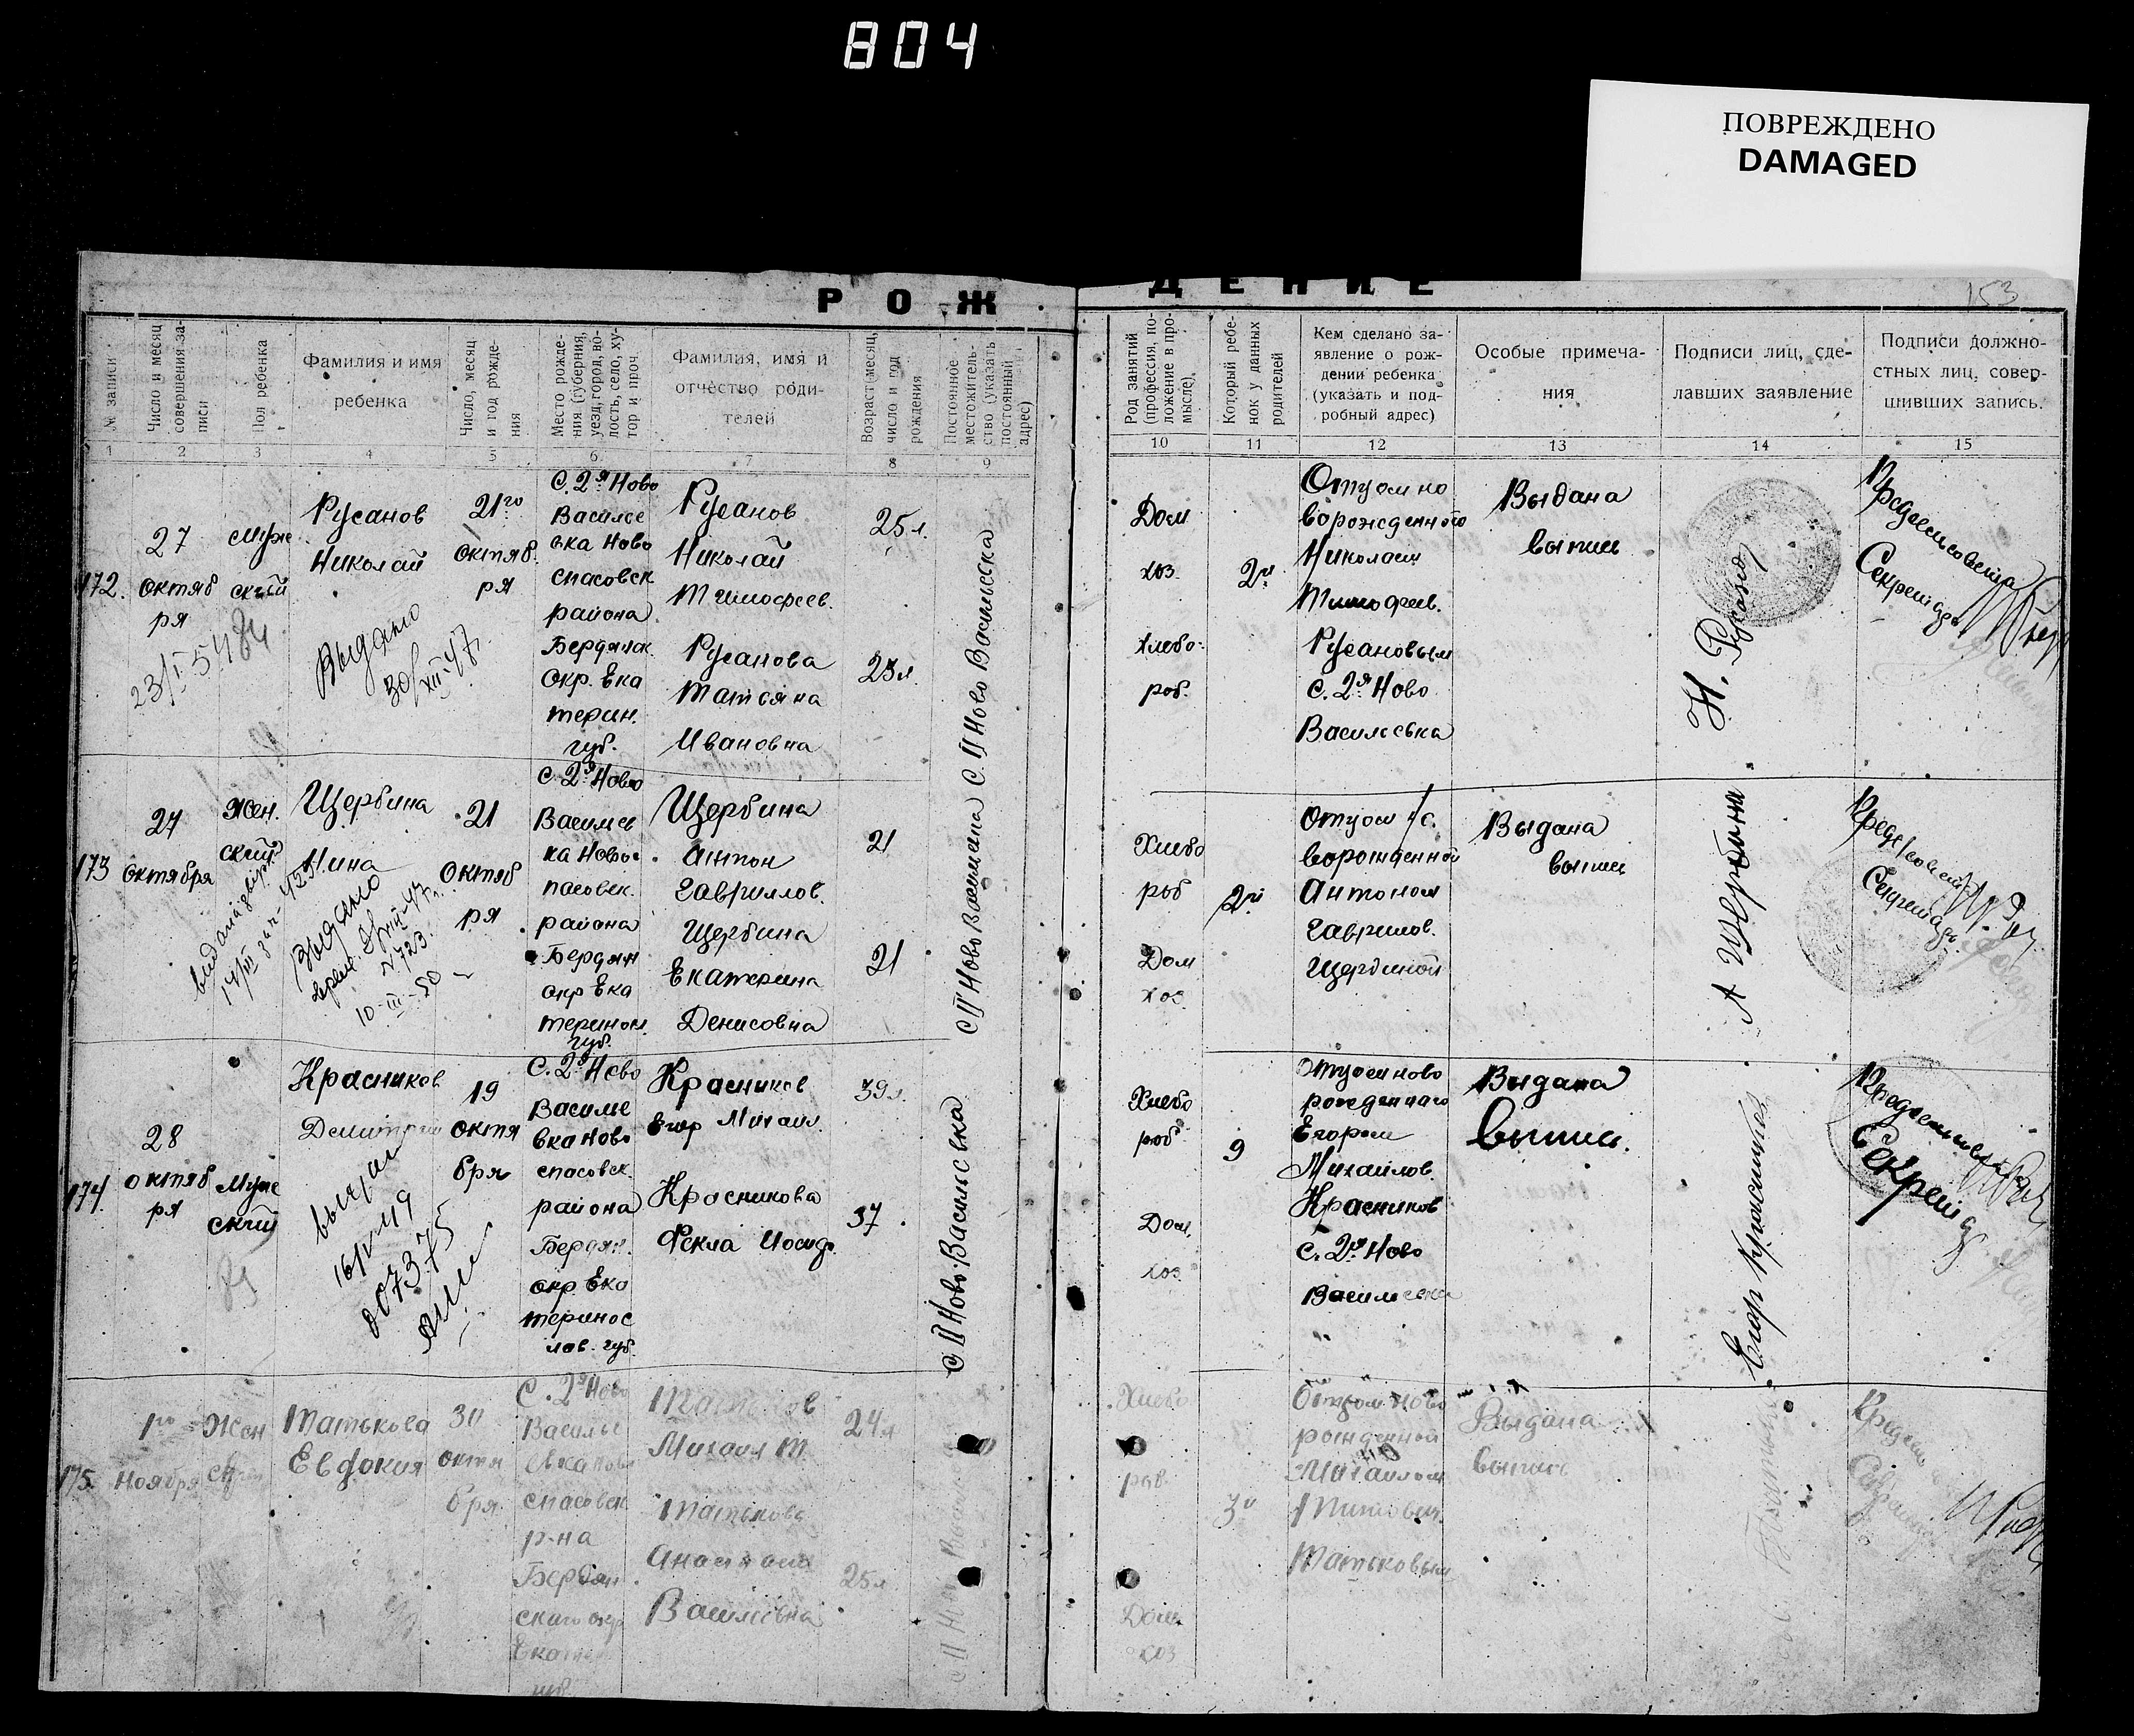 804
ПОВРЕЖДЕНО
DAMAGED
153
РОЖДЕНИЕ
№ записи
Число и месяц совершения записи
Пол ребенка
Фамилия и имя
ребенка
Число, месяц
и год рожде-
ния
Место рожде-
ния (губерния,
уезд, город, во-
лость, село, ху-
тор и проч.
Фамилия, имя и
отчество роди-
телей
Возраст месяц,
число и год
рождения
Постоянное
местожитель-
ство (указать
постоянный
адрес)
Род занятий
(профессия, по-
ложение в про-
мысле)
Который ребе-
нок у данных
родителей
Кем сделано за-
явление о рож-
дении ребенка
(указать и под-
робный адрес)
Особые примеча-
ния
Подписи лиц, сде-
лавших заявление
Подписи должно-
стных лиц, совер-
шивших запись.
1 2 3 4 5 6 7 8 9 10 11 12 13 14 15
172.
27
октяб
ря
Муж
ской
Русанов
Николай
Выдано
30/XII-47.
21го
октяб
ря
С. 2я Ново
Василье
вка Ново
спасовск
района
Бердянск.
окр. Ека
терин.
губ.
Русанов
Николай
Тимофеев.
Русанова
Татьяна
Ивановна
25 л.
23 л.
С. II Ново Васильевка
Дом
хоз.
хлебо-
роб.
2й
Отцом но
ворожденного
Николаем
Тимофеев.
Русановым
С. 2я Ново
Васильевка
Выдана
выпись
Н. Русанов
Предсельсовета
Секретарь
173
27
октября
Жен.
ский
Щербина
Нина
Выдано
10-III-50
21
октяб
ря
С. 2я Ново
Василев
ка Новос
пасовск.
района
Бердян
окр Ека
теринос.
губ.
Щербина
Антон
Гаврилов.
Щербина
Екатерина
Денисовна
21
21
С II Ново Васильевка
Хлебо
роб
Дом
хоз
2й
Отцом
ворожденной
Антоном
Гаврилов.
Щербиной
Выдана
выпись
А Щербина
Секретарь
174.
28
октяб
ря
Муж
ский
Красников
Демитрий
19
октя
бря
С. 2я Ново
Василье
вка Ново
спасовск.
района
Бердян.
окр Ека
теринос
лав. губ.
Красников
Егор Михаил.
Красникова
Фекла Иосиф.
39 л.
37.
С II Ново-Васильевка
Хлебо
роб
Дом.
хоз.
9
Отцом ново
рожденного
Егором
Михайлов.
Красников
С. 2я Ново
Васильевка
Выдана
выпись.
Егор Красников
Секретарь
175.
1го
Ноября
Жен
ский
Татькова
Евдокия
30
октя
бря.
С. 2я Ново
Василье
вка Ново
спасовск
р-на
Бердян
ского окр
Екатер
губ.
Татьков
Михаил Т.
Татькова
Анастасия
Васильевна
24 л
25 л.
Хлебо
роб.
Дом.
хоз
3й
Отцом Ново
рожденной
Михаилом
Титович.
Татьковым
Выдана
выпись